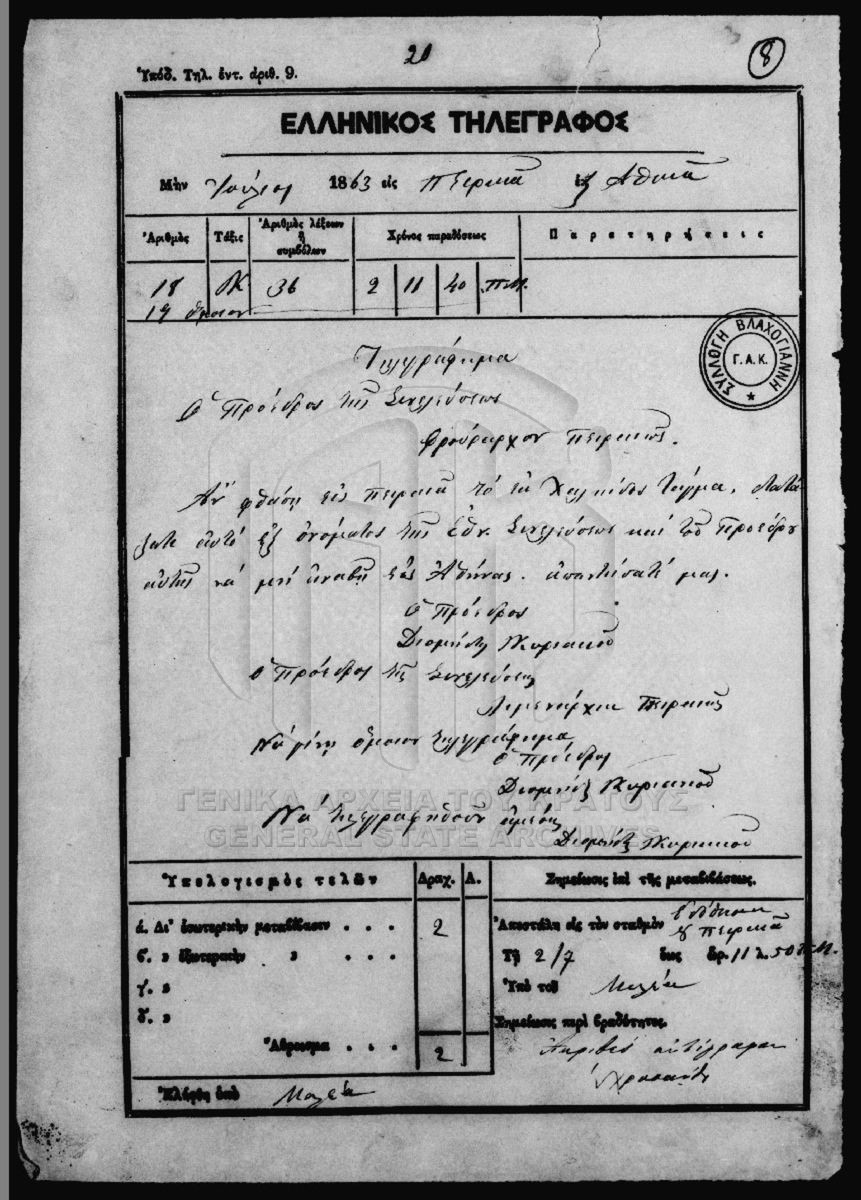 20
8
Ὑπόδ. Τηλ. ἐντ. ἀριθ. 9.
ΕΛΛΗΝΙΚΟΣ ΤΗΛΕΓΡΑΦΟΣ
Μὴν Ἰούλιος 1863 εἰς Πειραιᾶ ἐξ Ἀθηνῶν
Ἀριθμὸς Τάξις Ἀριθμὸς λέξεων ἢ συμβόλων Χρόνος παραθέσεως Παρατηρήσεις
18 36 2 11 40 π.μ.
19 ὅμοιον
Τηλεγράφημα
Ὁ Πρόεδρος τῆς Συνελεύσεως
Φρούραρχον Πειραιῶς.
Ἂν φθάσῃ εἰς Πειραιᾶ τὸ ἐκ Χαλκίδος Τάγμα, διατά
ξατε αὐτὸ ἐξ ὀνόματος τῆς Ἐθν. Συνελεύσεως καὶ τοῦ Προέδρου
αὐτῆς νὰ μὴ ἀναβῇ εἰς Ἀθήνας. ἀπαντήσατέ μας.
Ὁ Πρόεδρος
Διομήδης Κυριακοῦ
Ὁ Πρόεδρος τῆς Συνελεύσεως
Λιμενάρχην Πειραιῶς
Νὰ γίνῃ ὅμοιον τηλεγράφημα
Ὁ Πρόεδρος
Διομήδης Κυριακοῦ
Νὰ τηλεγραφηθοῦν ἀμέσως
Διομήδης Κυριακοῦ
ΣΥΛΛΟΓΗ ΒΛΑΧΟΓΙΑΝΝΗ
Γ.Α.Κ.
ΓΕΝΙΚΑ ΑΡΧΕΙΑ ΤΟΥ ΚΡΑΤΟΥΣ
GENERAL STATE ARCHIVES
Ὑπολογισμὸς τελῶν Δραχ. Λ. Σημείωσις ἐπὶ τῆς μεταβιβάσεως.
ά. Δι' ἐσωτερικὴν μεταβίβασιν . . . 2
β. » ἐξωτερικὴν » . . .
γ. »
δ. »
Ἄθροισμα . . . 2
Ἐλήφθη ὑπὸ
Ἀπεστάλη εἰς τὸν σταθμὸν Πειραιᾶ
Τῇ 2/7 ἕως ὥρ. 11 λ. 50 π.μ.
Ὑπὸ τοῦ
Σημείωσις περὶ βραδύτητος.
Ἀκριβὲς ἀντίγραφον